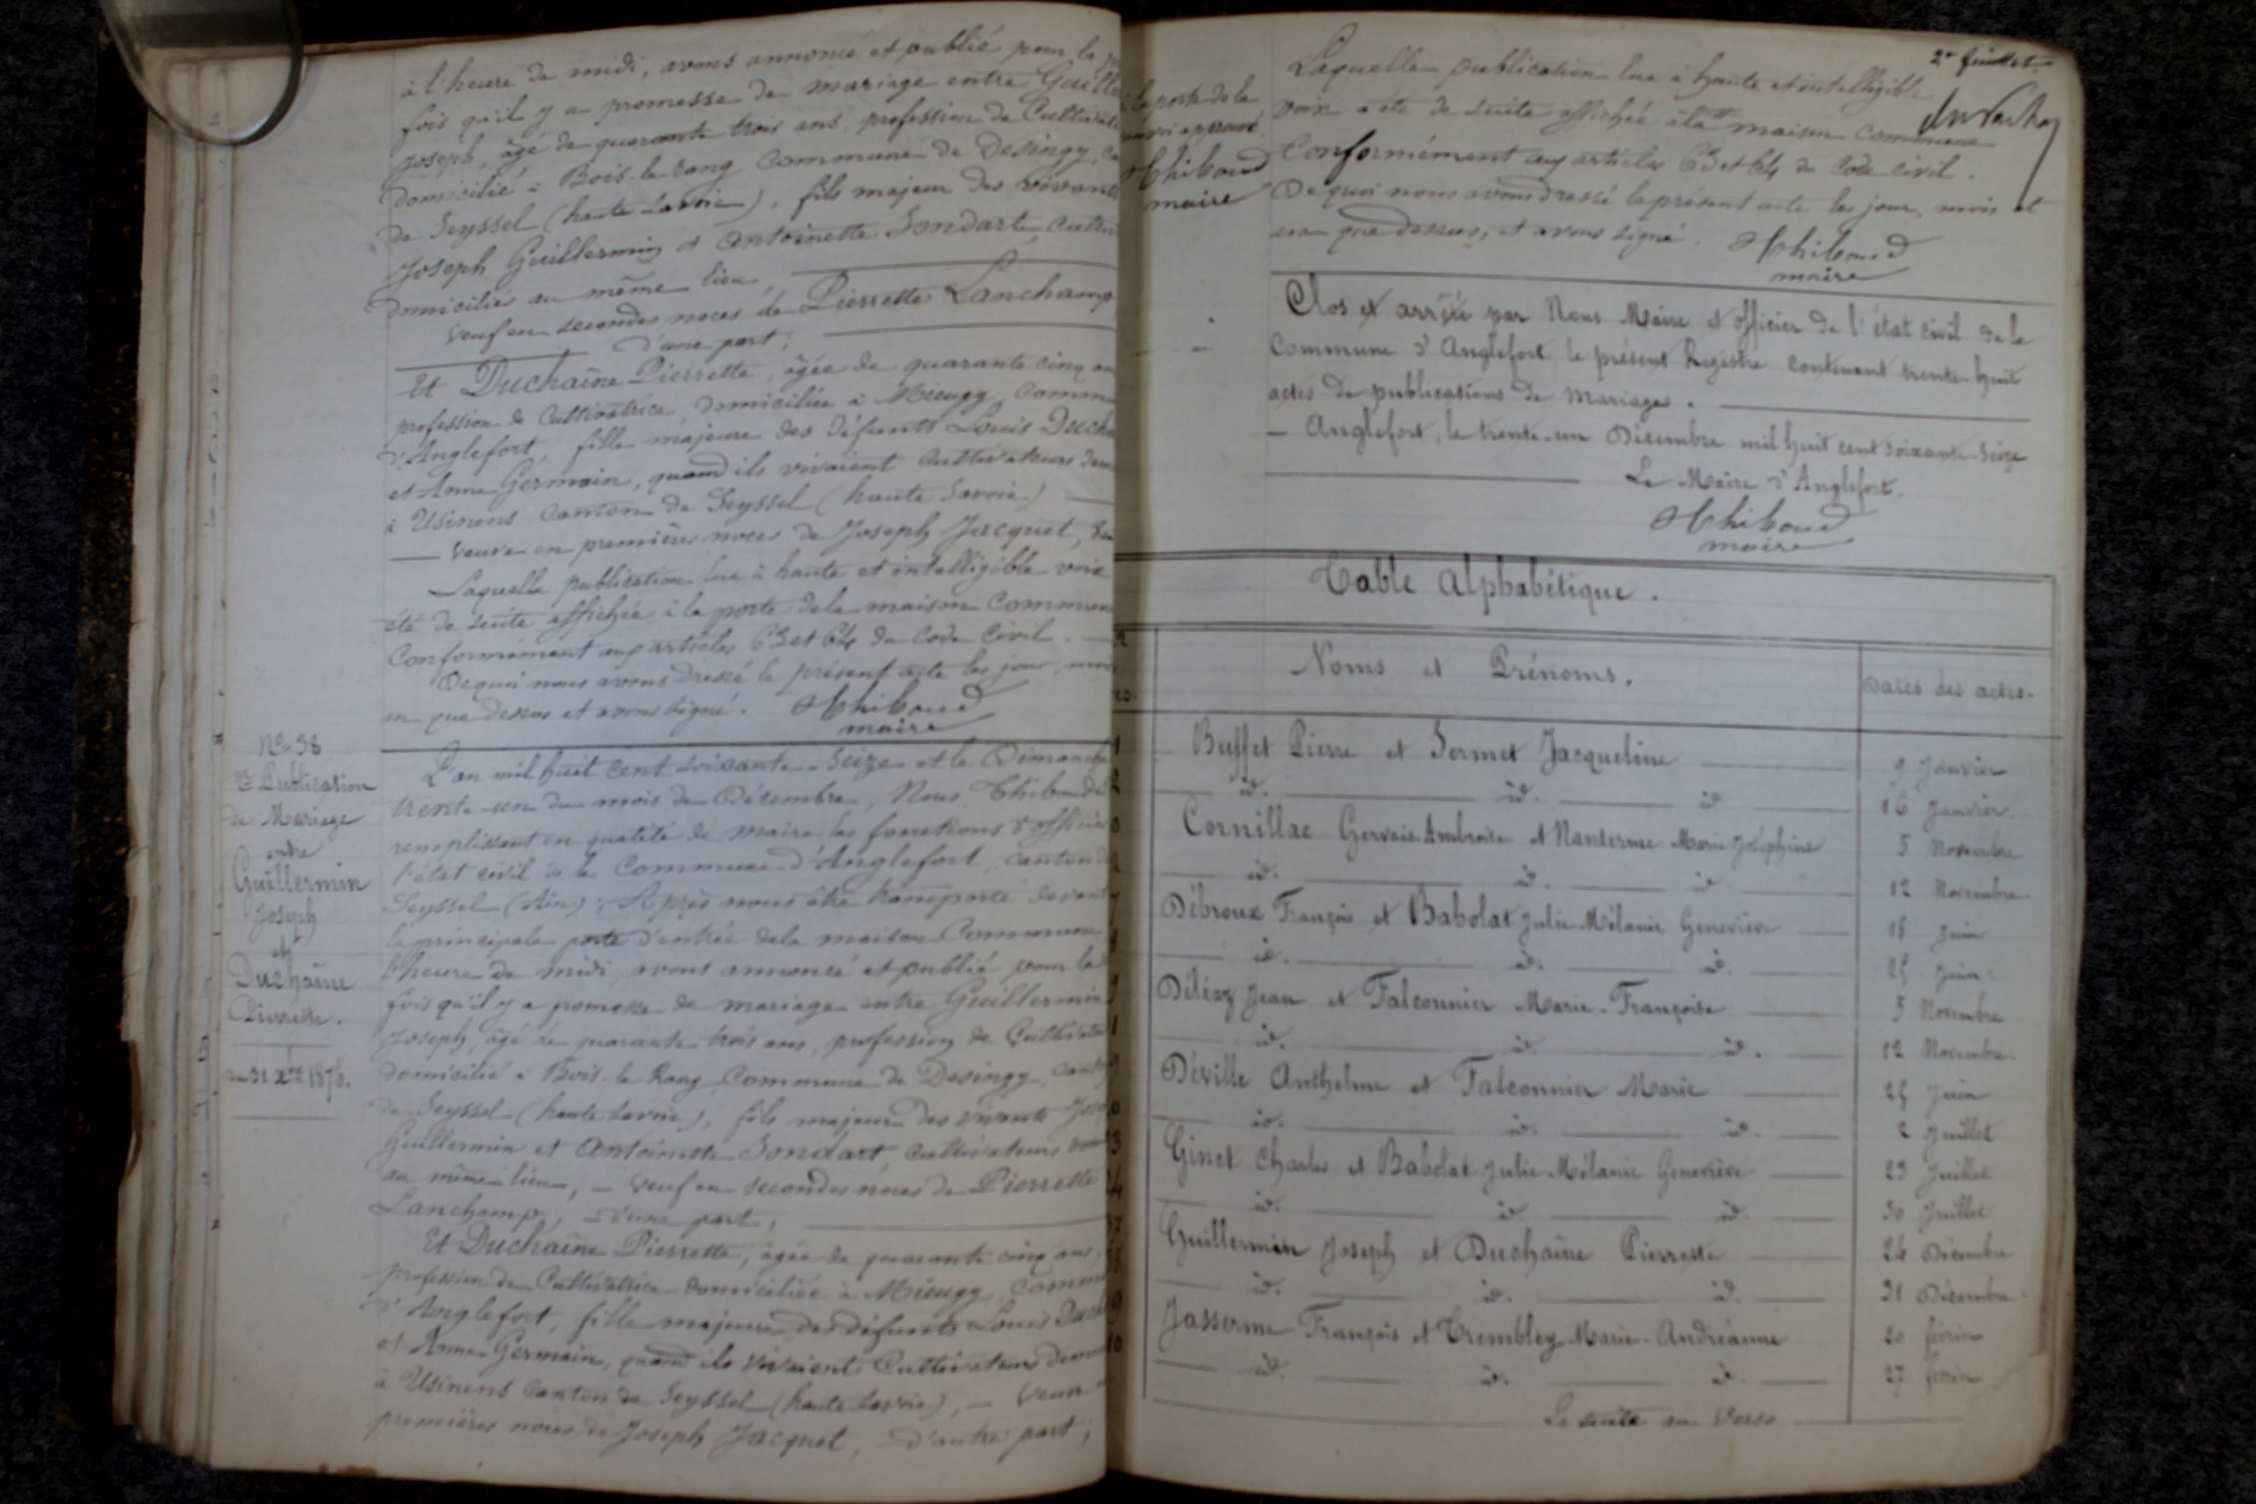 à l'heure de midi, avons annoncé et publié pour la
fois qu'il y a promesse de mariage entre Guille
Joseph, âgé de quarante trois ans, profession de Cultivate
domicilié à Bois-le-rang Commune de Desingy, ca
de Seyssel (haute Savoie), fils majeur des vivants
Joseph Guillermin et Antoinette Sondart, Cultiv
domiciliés au même lieu,
Veuf en secondes noces de Pierrette Lanchamp
d'une part;
Et Duchaîne Pierrette, âgée de quarante cinq an
profession de Cultivatrice, domiciliée à Mieugy, Comm
d'Anglefort, fille majeure des défunts Louis Ducha
et Anne Germain, quand ils vivaient Cultivateurs dem
à Usinens Canton de Seyssel (haute Savoie)
Veuve en premières noces de Joseph Jacquet,
Laquelle publication lue à haute et intelligible voix
été de suite affichée à la porte de la maison Commun
Conformément aux articles 63 et 64 du Code Civil.
De quoi nous avons dressé le présent acte les jour, moi
an que dessus et avons signé. Thiboud
maire
No 38
2e Publication
de Mariage
entre
Guillermin
Joseph
et
Duchaîne
Pierrette.
du 31 Xbre 1876.
L'an mil huit cent soixante-seize et le Dimanche
trente-un du mois de Décembre, Nous Thiboud
remplissant en qualité de maire les fonctions d'officier
l'état civil de la Commune d'Anglefort, canton de
Seyssel (Ain); Après nous être transporté devant
la principale porte d'entrée de la maison Commune
l'heure de midi, avons annoncé et publié pour la
fois qu'il y a promesse de mariage entre Guillermin
Joseph, âgé de quarante trois ans, profession de Cultivate
domicilié à Bois-le Rang Commune de Desingy, cant
de Seyssel (haute Savoie), fils majeur des vivants Jose
Guillermin et Antoinette Sondart, Cultivateurs dom
au même lieu, – Veuf en secondes noces de Pierrette
Lanchamp, – d'une part;
Et Duchaîne Pierrette, âgée de quarante cinq ans,
profession de Cultivatrice domiciliée à Mieugy, Comm
d'Anglefort, fille majeure des défunts Louis Ducha
et Anne Germain, quand ils vivaient Cultivateurs dem
à Usinens Canton de Seyssel (haute Savoie), – Veuve
premières noces de Joseph Jacquet, – d'autre part;
2e feuillet.
à la porte de la
approuvé
Thiboud
maire
Laquelle publication lue à haute et intelligible
voix a été de suite affichée à la maison Commune
Conformément aux articles 63 et 64 du Code civil.
De quoi nous avons dressé le présent acte les jour, mois et
an que dessus, et avons signé. Thiboud
maire
Clos et arrêté par Nous Maire et officier de l'état civil de la
Commune d'Anglefort le présent Registre contenant trente-huit
actes de publications de mariages.
– Anglefort, le trente-un Décembre mil huit cent soixante-seize
Le Maire d'Anglefort.
Thiboud
maire
Table Alphabétique.
Noms et Prénoms. Dates des actes.
Buffet Pierre et Sermet Jacqueline 9 Janvier
id. id. id 16 Janvier
Cornillac Gervais-Ambroise et Nanterme Marie Joséphine 5 Novembre
id. id. id 12 Novembre
Débroux François et Babolat Julie Mélanie Geneviève 18 Juin
id. id. id. 25 Juin
Déléaz Jean et Falconnier Marie-Françoise 5 Novembre
id. id. id. 12 Novembre
Déville Anthelme et Falconnier Marie 25 Juin
id. id. id. 2 Juillet
Ginet Charles et Babolat Julie Mélanie Geneviève 23 Juillet
id. id. id. 30 Juillet
Guillermin Joseph et Duchaîne Pierrette 24 Décembre
id. id. id. 31 Décembre
Jasserme François et Trembley Marie-Andréanne 20 février
id. id. id. 27 février
La suite au Verso